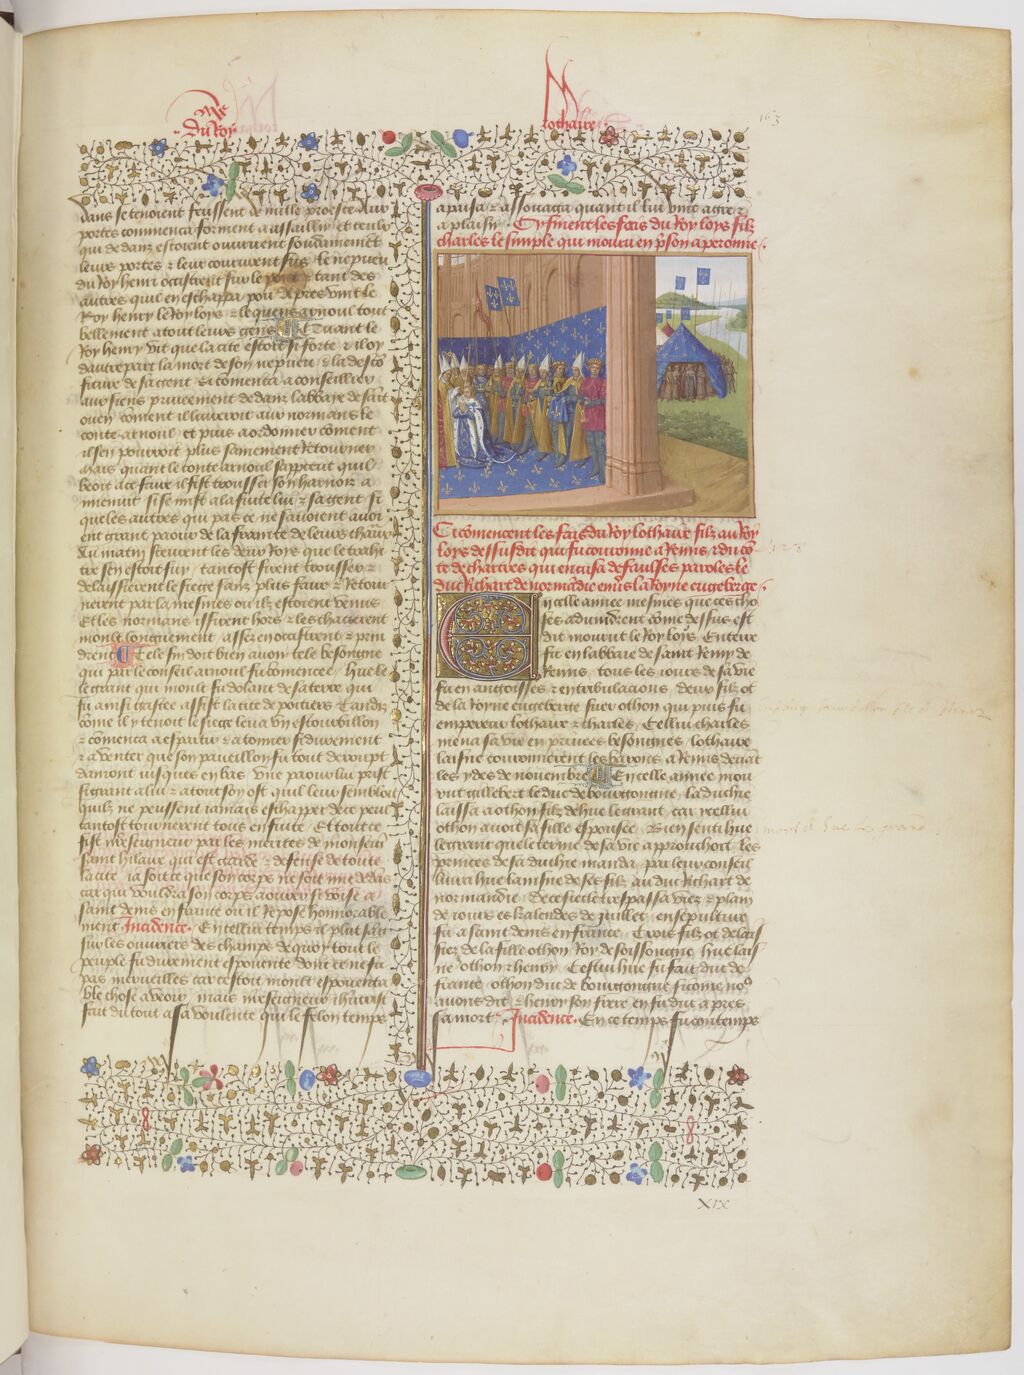 Vie
Du Roy
lothaire
163
dans se tenoient feissent de mille proesce Aux
portes commenca forment a assaillir et ceulx
qui dedanz estoient ouvrirent soudainemēt
leurs portes & leur coururent sus le nepueu
du Roy henri occistrent sur le pont & tant des
autres quil en eschappa pou Apres vint le
Roy henry le Roy loys & le quens arnoul tout
bellement a tout leurs gens Quant le
Roy henry vit que la cite estoit si forte & il oy
dautre part la mort de son nepueu & la desco
fiture de sa gent Et comenca a conseillier
aux siens priveement dedanz labbaie de saīt
ouen coment il liverroit aux normans le
conte arnoul et puis a ordonner coment
il sen pourroit plus sainement Retourner
Mais quant le conte arnoul sapperceut quil
beoit a ce faire il fist trousser son harnois a
mienuit si se mist a la fuite lui & sa gent si
que les autres qui pas ce ne savoient avoi
ent grant paour de la frainte de leurs chaux
Au matin sceurent les deux Roys que le traihi
tre sen estoit fuy tantost firent trousser &
delaissierent le siege sanz plus faire & Retour
nerent par la mesmes ou ilz estoient venus
Et les normans issirent hors & les chacierent
moult longuement assez en occistrent & prin
drent Tele fin dort bien avoir tele besongne
qui par le conseil arnoul fu comencee hue le
le grant qui moult fu dolant de sa terre qui
fu ainsi gastee assist la cite de poitiers Tandiz
come il y tenoit le siege leva un estourbillon
& comenca a espartir & a tonner si durement
& a venter que son paveillon fu tout deroupt
damont jusques en bas une paour lui prist
si grant a lui & a tout son ost quil leur sembloit
quilz ne peussent jamais eschapper de ce peril
tantost tournerent tous en fuite Et tout ce
fist nreseigneur par les merites de monseign
saint hilaire qui est garde & defense de toute
la cite ja soit ce que son corps ne soit mie dedās
car qui vouldra son corps aourer si voise a
saint denis en france ou il Repose honnorable
ment Incidence En cellui temps il plut sanc
sur les ouvriers des champs de quoy tout le
peuple fu durement espouente dont ce ne fu
pas merveilles car cestoit moult espouenta
ble chose a veoir mais nreseigneur ihūcrist
fait du tout a sa voulente qui le felon temps
apaisa & assouaga quant il lui vint a gre &
a plaisir Cy finent les fais du Roy loys filz
charles le simple qui mouru en psōn a peronne
Ci comencent les fais du Roy lothaire filz au Roy
loys dessusdit qui fu couronne a Reims & du cō
te de chartres qui encusa de faulses paroles le
duc Richart de normādie envers la Royne engeberge
En celle annee mesmes que ces cho
ses advindrent come dessus est
dit mourut le Roy loys Enterre
fu en labbaie de saint Remy de
Reims tous les jours de sa vie
fu en angoisses & en tribulacions deux filz ot
de la Royne engeberge suer othon qui puis fu
empereur lothaire & charles Cellui charles
mena sa vie en privees besongnes lothaire
laisne couronnerent les barons a Reims devāt
les ydes de novembre En celle annee mou
rut gillebert le duc de bourgongne la duchie
laissa a othon filz de hue le grant car icellui
othon avoit sa fille espousee Bien senti hue
le grant que le terme de sa vie approuchoit les
princes de sa duchie manda par leur conseil
livra hue lainsne de ses filz au duc Richart de
normandie de ce siecle trespassa viez & plain
de jours es kalendes de juillet ensepulture
fu a saint denis en france Trois filz ot delais
siez de la fille othon Roy de soissongne hue lais
ne othon & henry Cestui hue fu fait duc de
france othon duc de bourgongne si come nō9
avons dit & henry son frere en fu duc apres
sa mort Incidence En ce temps fu contemps
XIX